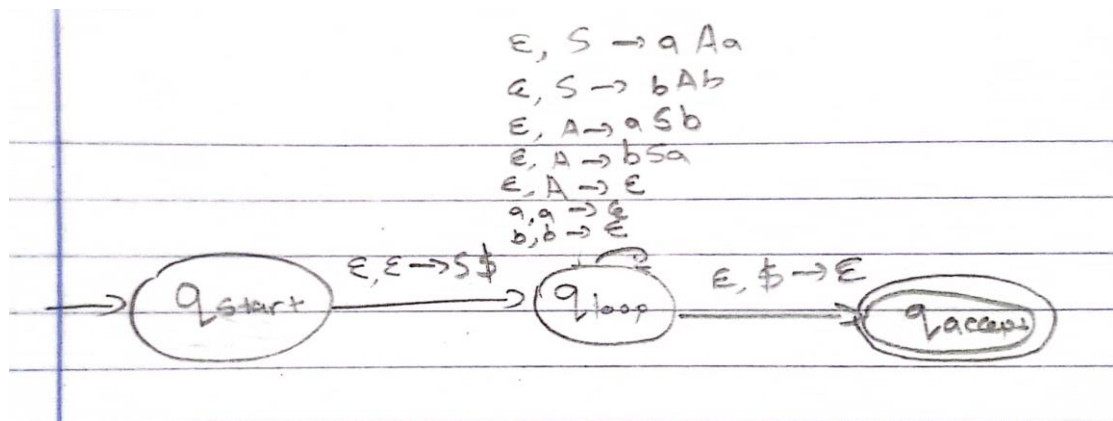 ε, S → aAa
ε, S → bAb
ε, A → aSb
ε, A → bSa
ε, A → ε
a, a → ε
b, b → ε
ε, ε → S$
ε, $ → ε
qstart
qloop
qaccept